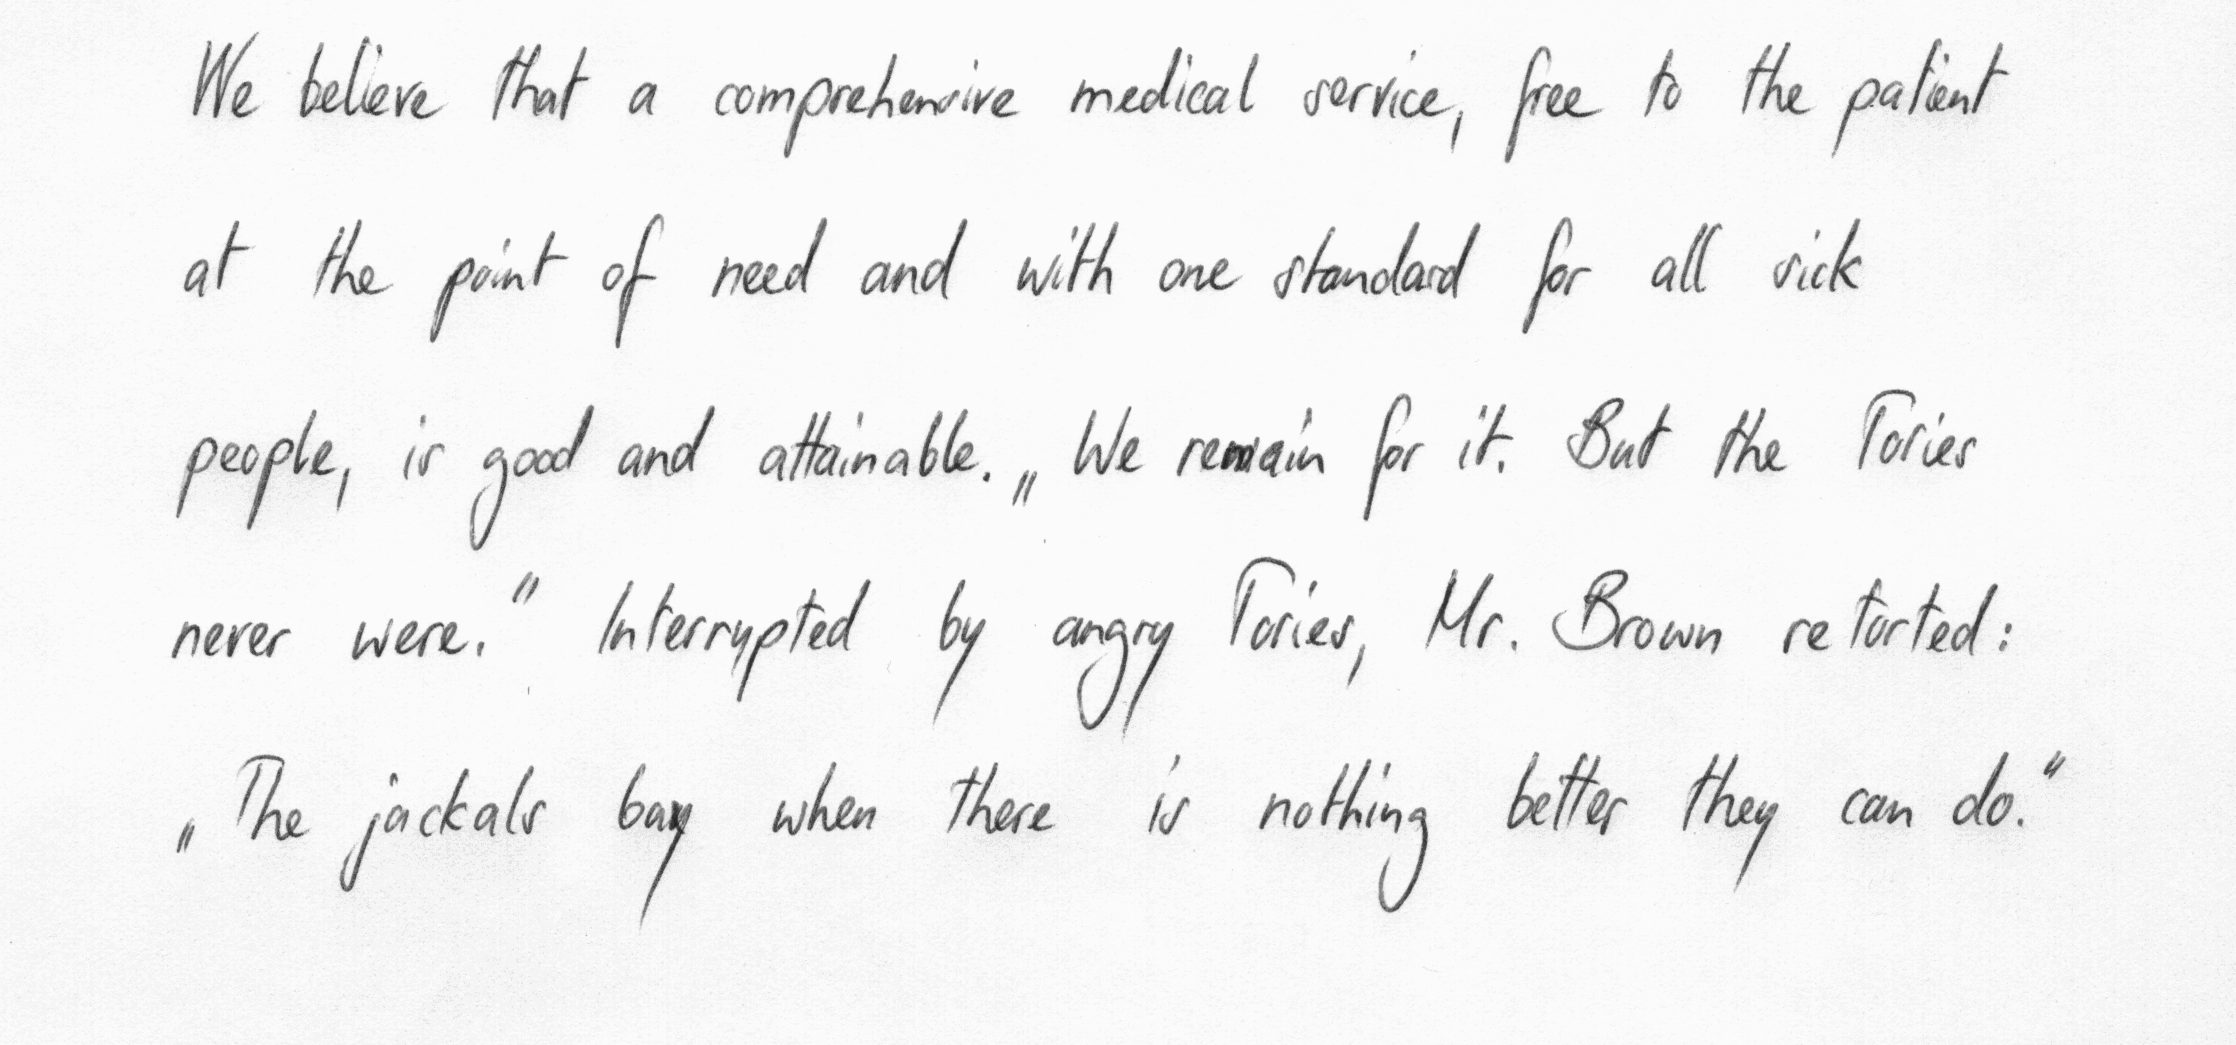 We believe that a comprehensive medical service, free to the patient
at the point of need and with one standard for all sick
people, is good and attainable. „We remain for it. But the Tories
never were." Interrupted by angry Tories, Mr. Brown retorted:
„The jackals bay when there is nothing better they can do."